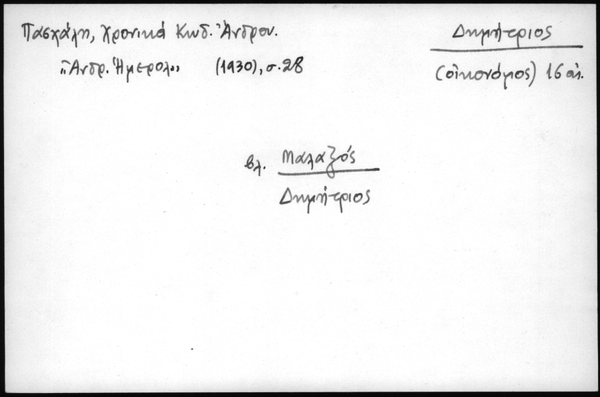 Πασχάλη, Χρονικά Κωδ. Ἄνδρου.
"Ἀνδρ. Ἡμερολ." (1930), σ. 28
Δημήτριος
(οἰκονόμος) 16 αἰ.
βλ. Μαλαζός
Δημήτριος